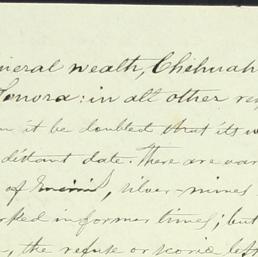 neral wealth, Chihuah
Sonora: in all other re
it be doubted that its
distant date. There are
of silver-mines
rked in former times; but
, the refuse or scoria left